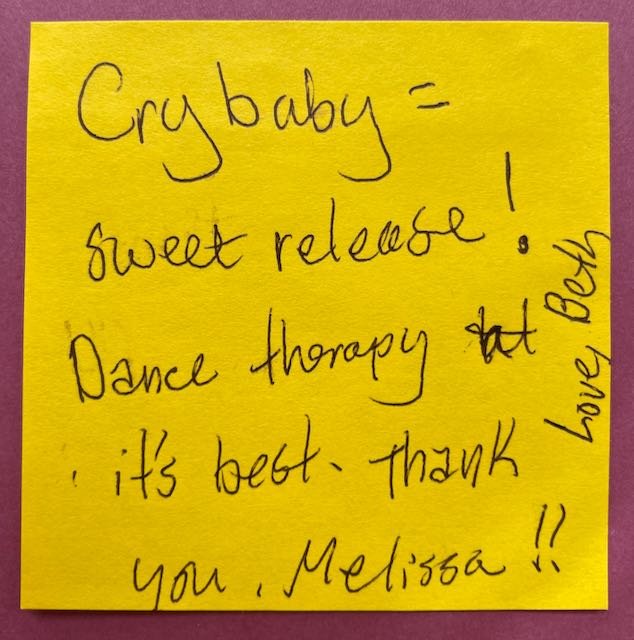 Crybaby =
sweet release!
Dance therapy at
it's best. Thank
you, Melissa!!
Love, Beth